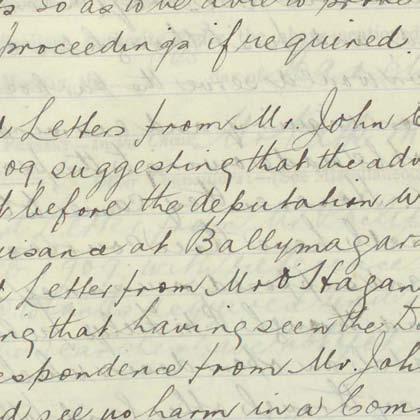 so as to be able to prove
proceedings if required
Letters from Mr. John
09, suggesting that the adv
before the deputation w
uisance at Ballymagar
Letter from Mr O'Hagan
ing that having seen the D
espondence from Mr. Joh
d see no harm in a Com